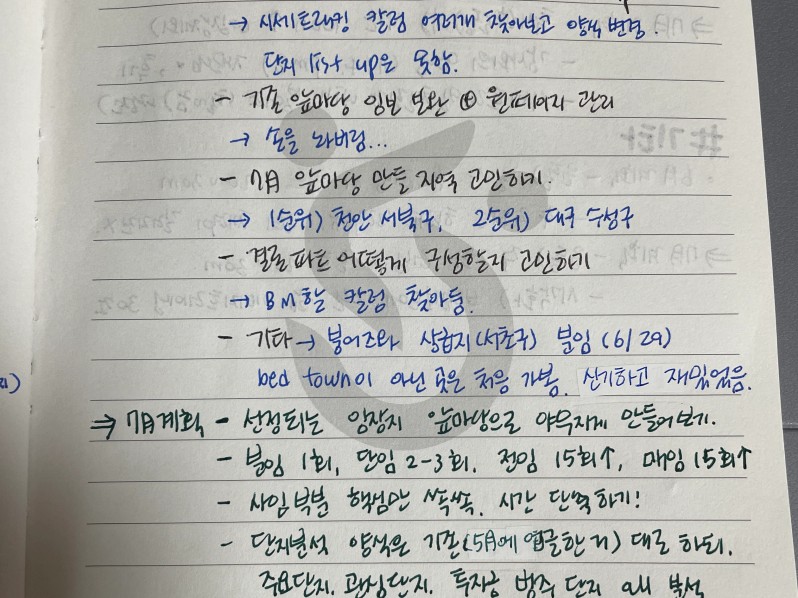 → 시세트래킹 칼럼 여러개 찾아보고 양식 변경.
단지 list up은 못함.
- 기존 앞마당 임보 보완 ⊕ 원페이지 관리
→ 손을 놔버림...
- 7月 앞마당 만들 지역 고민하기.
→ 1순위) 천안 서북구, 2순위) 대구 수성구
- 결론파트 어떻게 구성할지 고민하기
→ BM할 칼럼 찾아둠.
- 기타 → 붕어즈와 상급지(서초구) 분임 (6/29)
bed town이 아닌 곳은 처음 가봄. 신기하고 재밌었음.
⇒ 7月계획 - 선정되는 임장지 앞마당으로 야무지게 만들어보기.
- 분임 1회, 단임 2-3회, 전임 15회↑, 매임 15회↑
- 사임 부분 핵심만 쏙쏙. 시간 단축하기!
- 단지분석 양식은 기존(5月에 열클한 거) 대로 하되,
주요단지, 관심단지, 투자 단지 all 분석
#기타
21)